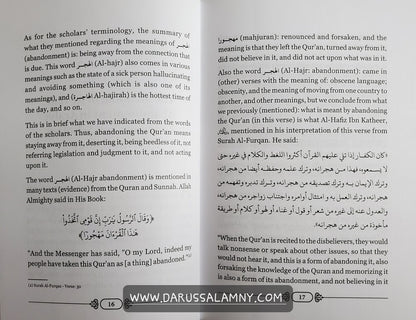 As for the scholars' terminology, the summary of
what they mentioned regarding the meanings of الهجر
(abandonment) is: being away from the connection that
is due. This word الهجر (Al-hajr) also comes in various
meanings such as the state of a sick person hallucinating
and avoiding something (which is also one of its
meanings), and (الهاجرة) (Al-hajirah) is the hottest time of
the day, and so on.
This is in brief what we have indicated from the words
of the scholars. Thus, abandoning the Qur'an means
staying away from it, deserting it, being heedless of it, not
referring legislation and judgment to it, and not acting
upon it.
The word الهجر (Al-Hajr abandonment) is mentioned in
many texts (evidence) from the Quran and Sunnah. Allah
Almighty said in His Book:
﴿وَقَالَ ٱلرَّسُولُ يَٰرَبِّ إِنَّ قَوْمِى ٱتَّخَذُوا۟
هَٰذَا ٱلْقُرْءَانَ مَهْجُورًا﴾
"And the Messenger has said, "O my Lord, indeed my
people have taken this Qur'an as [a thing] abandoned."
Surah Al-Furqan - Verse: 30
16
مهجورا (mahjuran): renounced and forsaken, and the
meaning is that they left the Qur'an, turned away from it,
did not believe in it, and did not act upon what was in it.
Also the word الهجر (Al-Hajr: abandonment): came in
(other) verses with the meaning of: obscene language;
obscenity, and the meaning of moving from one country to
another, and other meanings, but we conclude from what
we previously mentioned: what is meant by abandoning
the Qur'an (in this verse) is what Al-Hafiz Ibn Katheer,
mentioned in his interpretation of this verse from
Surah Al-Furqan. He said:
«كان الكفار إذا تلي عليهم القرآن أكثروا اللغط والكلام في غيره، حتى
لا يسمعوه، فهذا من هجرانه، وترك علمه وحفظه أيضا من هجرانه،
وترك الإيمان به وترك تصديقه من هجرانه، وترك تدبره وتفهمه من
هجرانه، وترك العمل به وامتثال أوامره واجتناب زواجره من هجرانه،
والعدول عنه إلى غيره من شعر أو قول أو غناء أو لهو أو كلام أو طريقة
مأخوذة من غيره من هجرانه.
"When the Qur'an is recited to the disbelievers, they would
talk nonsense or speak about other issues, so that they
would not hear it, and this is a form of abandoning it, also
forsaking the knowledge of the Quran and memorizing it
is also a form of its abandonment, and not believing in it
17
WWW.DARUSSALAMNY.COM